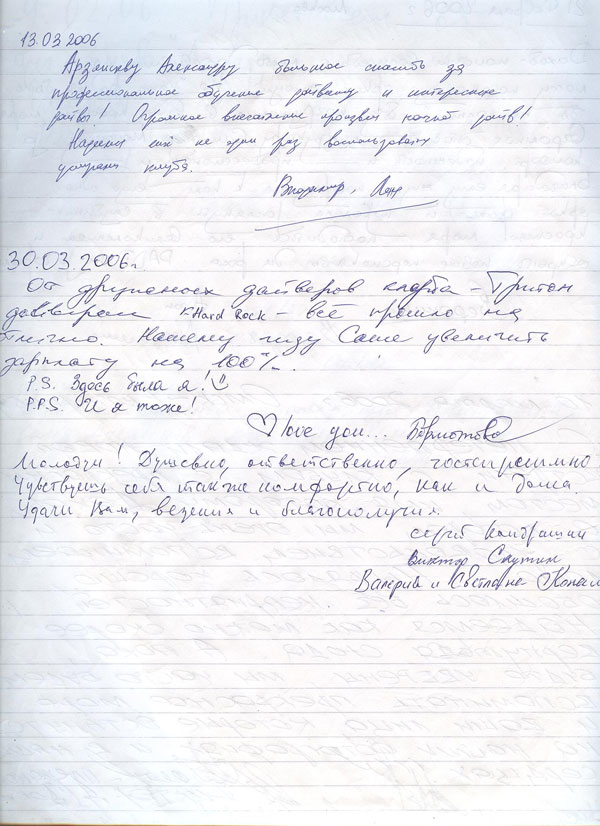 13.03.2006
Александру большое спасибо за
профессиональное обучение дайвингу и интересные
дайвы! Огромное впечатление произвел ночной дайв!
Надеемся ещё не один раз воспользоваться
услугами клуба.
Владимир,
30.03.2006г.
От дружеских дайверов клуба – Тритон
дайверам "Hard Rock – всё прошло на
отлично. Нашему гиду Саше увеличить
зарплату на 100%.
P.S. Здесь была я!
P.P.S. И я тоже!
♡ love you...
Молодцы! Душевно, ответственно, гостеприимно
Чувствуешь себя также комфортно, как и дома.
Удачи Вам, везения и благополучия.
Сергей
Виктор
Валерий и Светлана